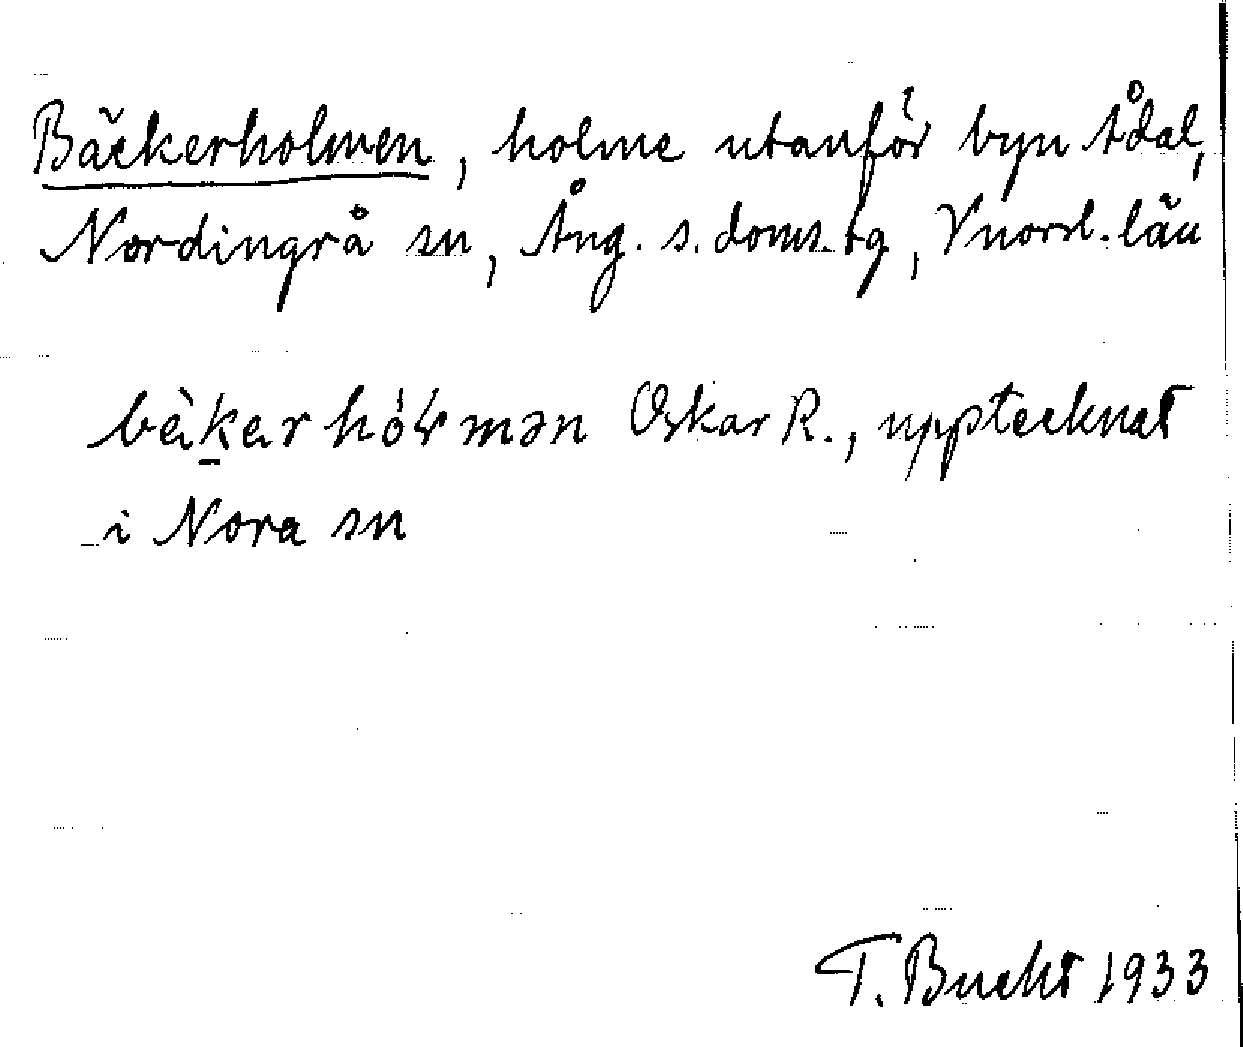 Bäckerholmen, holme utanför byn Ådal,
Nordingrå sn, Ång. s. doms. tg, Vnorrl. län
bèk̠ar hóɫmən Oskar R., upptecknat
i Nora sn
T. Bucht 1933